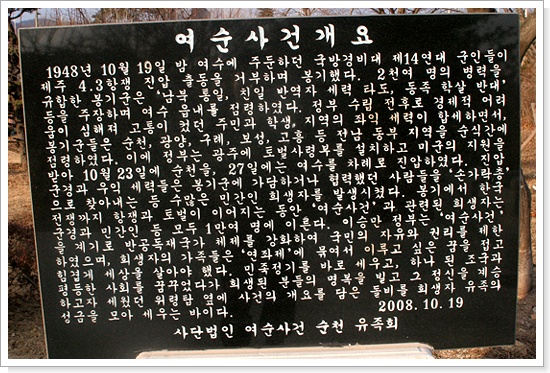 여순사건개요
1948년 10월 19일 밤 여수에 주둔하던 국방경비대 제14연대 군인들이
제주 4.3항쟁 진압 출동을 거부하며 봉기했다. 2천여 명의 병력을
규합한 봉기군은 '남북 통일, 친일 반역자 세력 타도, 동족 학살 반대'
등을 주장하며 여수 읍내를 점령하였다. 정부 수립 전후로 경제적 어려
움이 심해져 고통이 컸던 주민과 학생, 지역의 좌익 세력이 합세하면서,
봉기군들은 순천, 광양, 구례, 보성, 고흥 등 전남 동부 지역을 순식간에
점령하였다. 이에 정부는 광주에 토벌사령목를 설치하고 미군의 지원을
받아 10월 23일에 순천을, 27일에는 여수를 차례로 진압하였다. 진압
국경과 우익 세력들은 봉기군에 가담하거나 협력했던 사람들을 '손가락총'
으로 찾아내는 등 수많은 민간인 희생자를 발생시켰다. 봉기에서 한국
전쟁까지 항쟁과 토벌이 이어지는 동안 '여순사건'과 관련된 희생자는
군경과 민간인 등 모두 1만여 명에 이른다. 이승만 정부는 '여순사건'
을 계기로 반공독재국가 체제를 강화하여 국민의 자유와 권리를 제한
하였으며, 희생자의 가족들은 '연좌제'에 묶여서 이루고 싶은 꿈을 접고
힘겹게 세상을 살아야 했다. 민족정기를 바로 세우고, 하나 된 조국과
평등한 사회를 꿈꾸었다가 희생된 분들의 명복을 빌고 그 정신을 계승
하고자 세웠던 위령탑 옆에 사건의 개요를 담은 돌비를 희생자 유족의
성금을 모아 세우는 바이다. 2008.10.19
사단법인 여순사건 순천 유족회